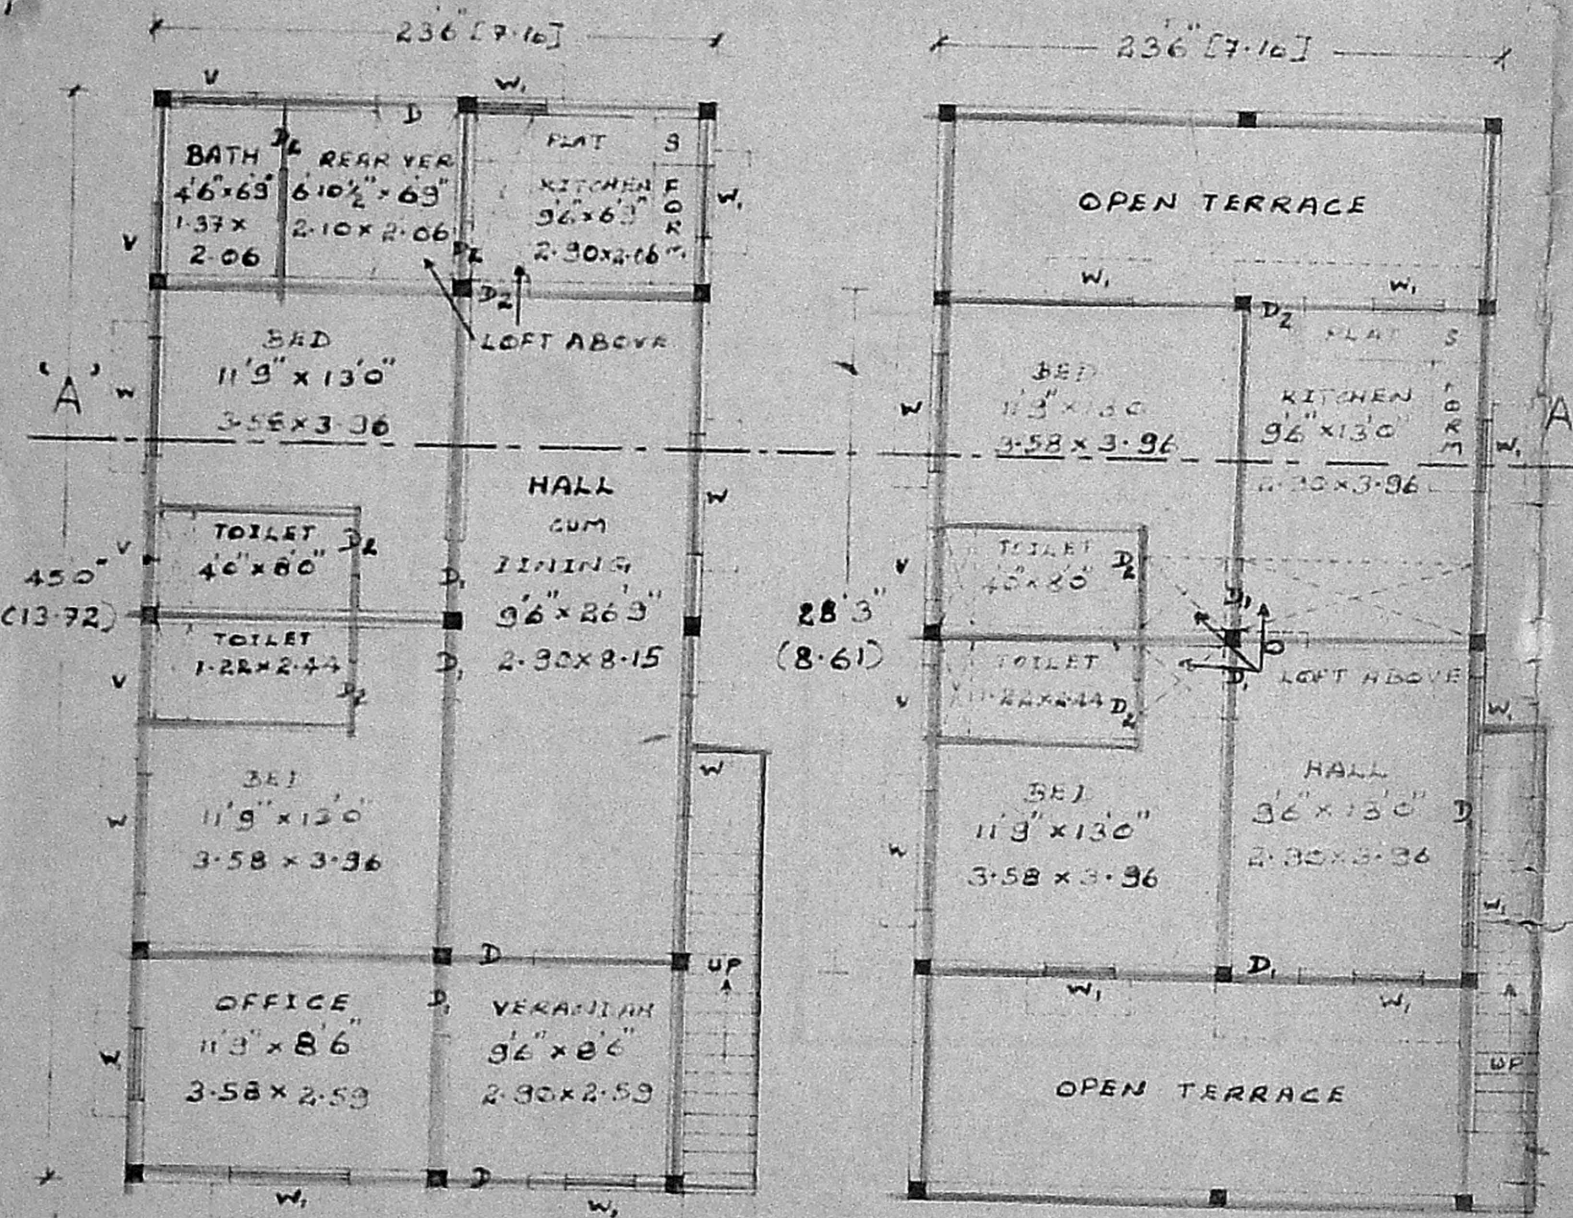 23'6" [7.16]
V
W1
D
BATH
4'6"x6'9"
1.37x
2.06
D2
REAR VER
6'10½"x6'9"
2.10x2.06
PLAT
S
KITCHEN
9'6"x6'9"
2.90x2.06
F
O
R
M
W1
V
D2
D2
LOFT ABOVE
BED
11'9" x 13'0"
3.58x3.96
'A'
W
HALL
CUM
DINING
9'6" x 26'9"
2.90x8.15
W
TOILET
4'0"x8'0"
D2
V
D1
45'0"
(13.72)
TOILET
1.22x2.44
D2
V
D1
BED
11'9" x 13'0"
3.58 x 3.96
W
W
UP
D
OFFICE
11'9" x 8'6"
3.58 x 2.59
D1
VERANDAH
9'6" x 8'6"
2.90x2.59
W
D
W1
W1
23'6" [7.16]
OPEN TERRACE
W1
W1
D2
PLAT
S
BED
11'9"x13'0"
3.58 x 3.96
KITCHEN
9'6"x13'0"
2.90x3.96
F
O
R
M
W
W1
A
TOILET
4'0"x8'0"
D2
V
D1
28'3"
(8.61)
D
D1
LOFT ABOVE
TOILET
1.22x2.44
D2
V
W1
BED
11'9" x 13'0"
3.58 x 3.96
HALL
9'6" x 13'0"
2.90x3.96
D
W
W1
D1
W1
W1
UP
OPEN TERRACE